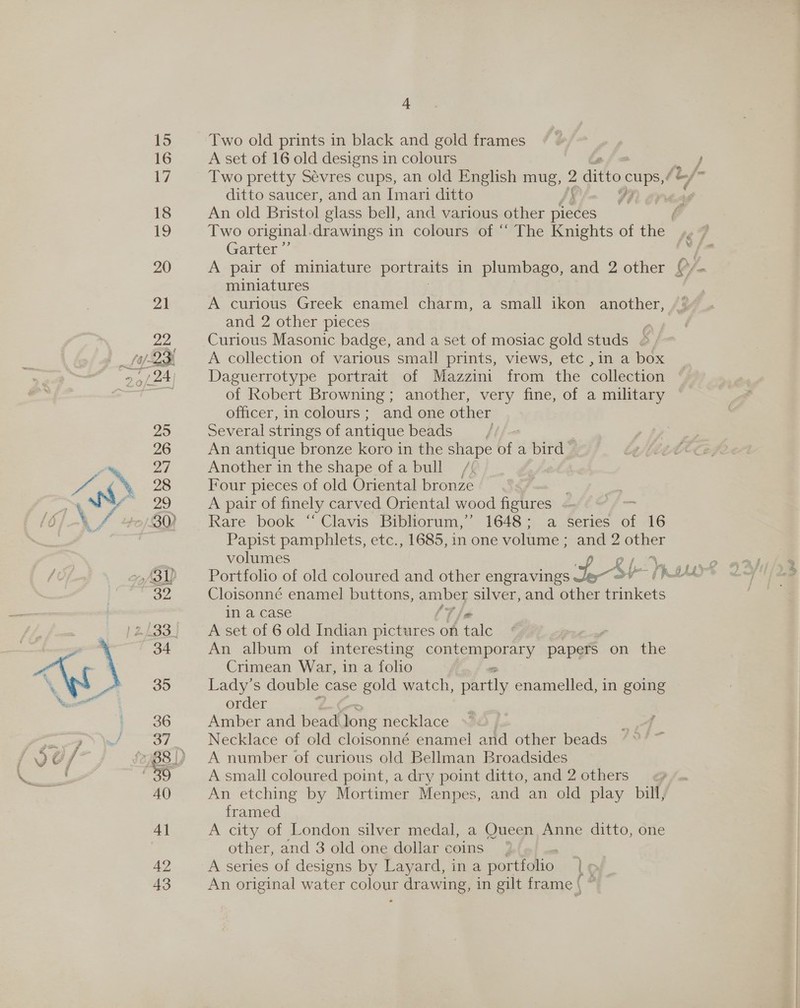 4
15 Two old prints in black and gold frames
16 A set of 16 old designs in colours
17 Two pretty Sèvres cups, an old English mug, 2 ditto cups,
ditto saucer, and an Imari ditto
18 An old Bristol glass bell, and various other pieces
19 Two original drawings in colours of “ The Knights of the
Garter ”
20 A pair of miniature portraits in plumbago, and 2 other
miniatures
21 A curious Greek enamel charm, a small ikon another,
and 2 other pieces
22 Curious Masonic badge, and a set of mosiac gold studs
23 A collection of various small prints, views, etc , in a box
24 Daguerrotype portrait of Mazzini from the collection
of Robert Browning ; another, very fine, of a military
officer, in colours ; and one other
25 Several strings of antique beads
26 An antique bronze koro in the shape of a bird
27 Another in the shape of a bull
28 Four pieces of old Oriental bronze
29 A pair of finely carved Oriental wood figures
30 Rare book “ Clavis Bibliorum,” 1648 ; a series of 16
Papist pamphlets, etc., 1685, in one volume ; and 2 other
volumes
31 Portfolio of old coloured and other engravings
32 Cloisonné enamel buttons, amber silver, and other trinkets
in a case
33 A set of 6 old Indian pictures on talc
34 An album of interesting contemporary papers on the
Crimean War, in a folio
35 Lady’s double case gold watch, partly enamelled, in going
order
36 Amber and bead long necklace
37 Necklace of old cloisonné enamel and other beads
38 A number of curious old Bellman Broadsides
39 A small coloured point, a dry point ditto, and 2 others
40 An etching by Mortimer Menpes, and an old play bill,
framed
41 A city of London silver medal, a Queen Anne ditto, one
other, and 3 old one dollar coins
42 A series of designs by Layard, in a portfolio
43 An original water colour drawing, in gilt frame